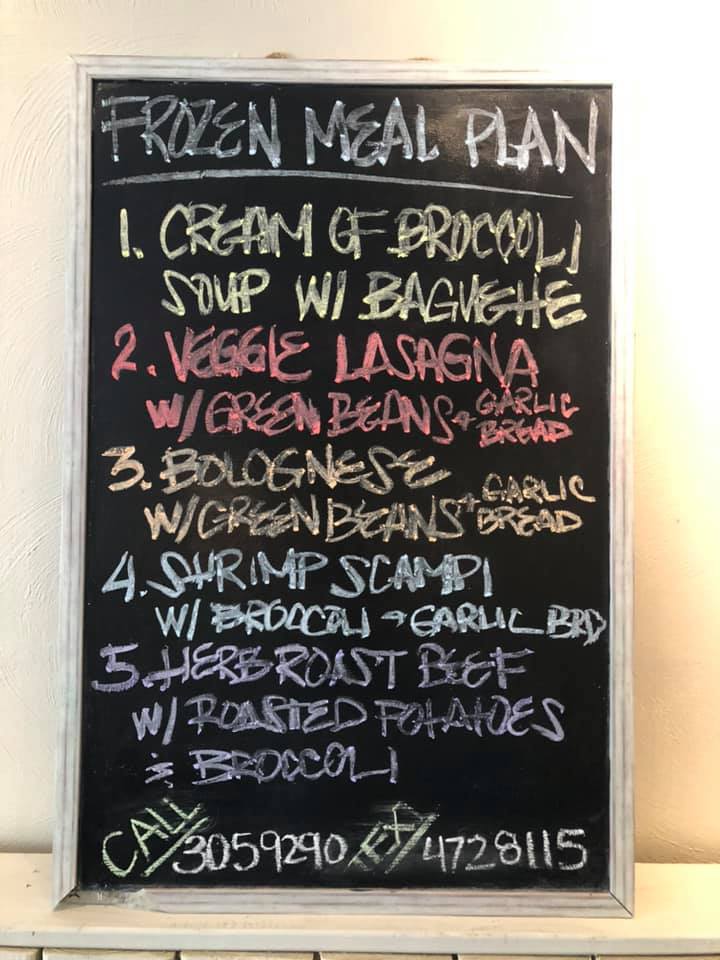 FROZEN MEAL PLAN
1. CREAM OF BROCCOLI
SOUP W/ BAGUETTE
2. VEGGIE LASAGNA
W/ GREEN BEANS + GARLIC BREAD
3. BOLOGNESE
W/ GREEN BEANS + GARLIC BREAD
4. SHRIMP SCAMPI
W/ BROCCOLI + GARLIC BRD
5. HERB ROAST BEEF
W/ ROASTED POTATOES
& BROCCOLI
CALL/ 3059290 TEXT/ 4728115